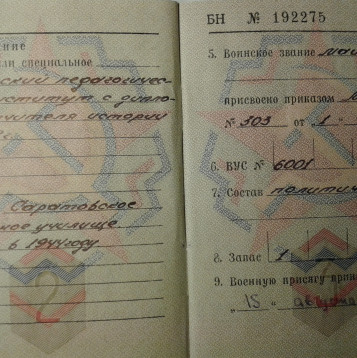 ние
ли специальное
ский педагогичес
нститут с дипло
учителя истории
Саратовское
ное училище
в 1944 году
2
БН № 192275
5. Воинское звание май
присвоено приказом М
№ 303 от „1"
6. ВУС № 6001
7. Состав полити
8. Запас 1
9. Военную присягу прин
„15" августа